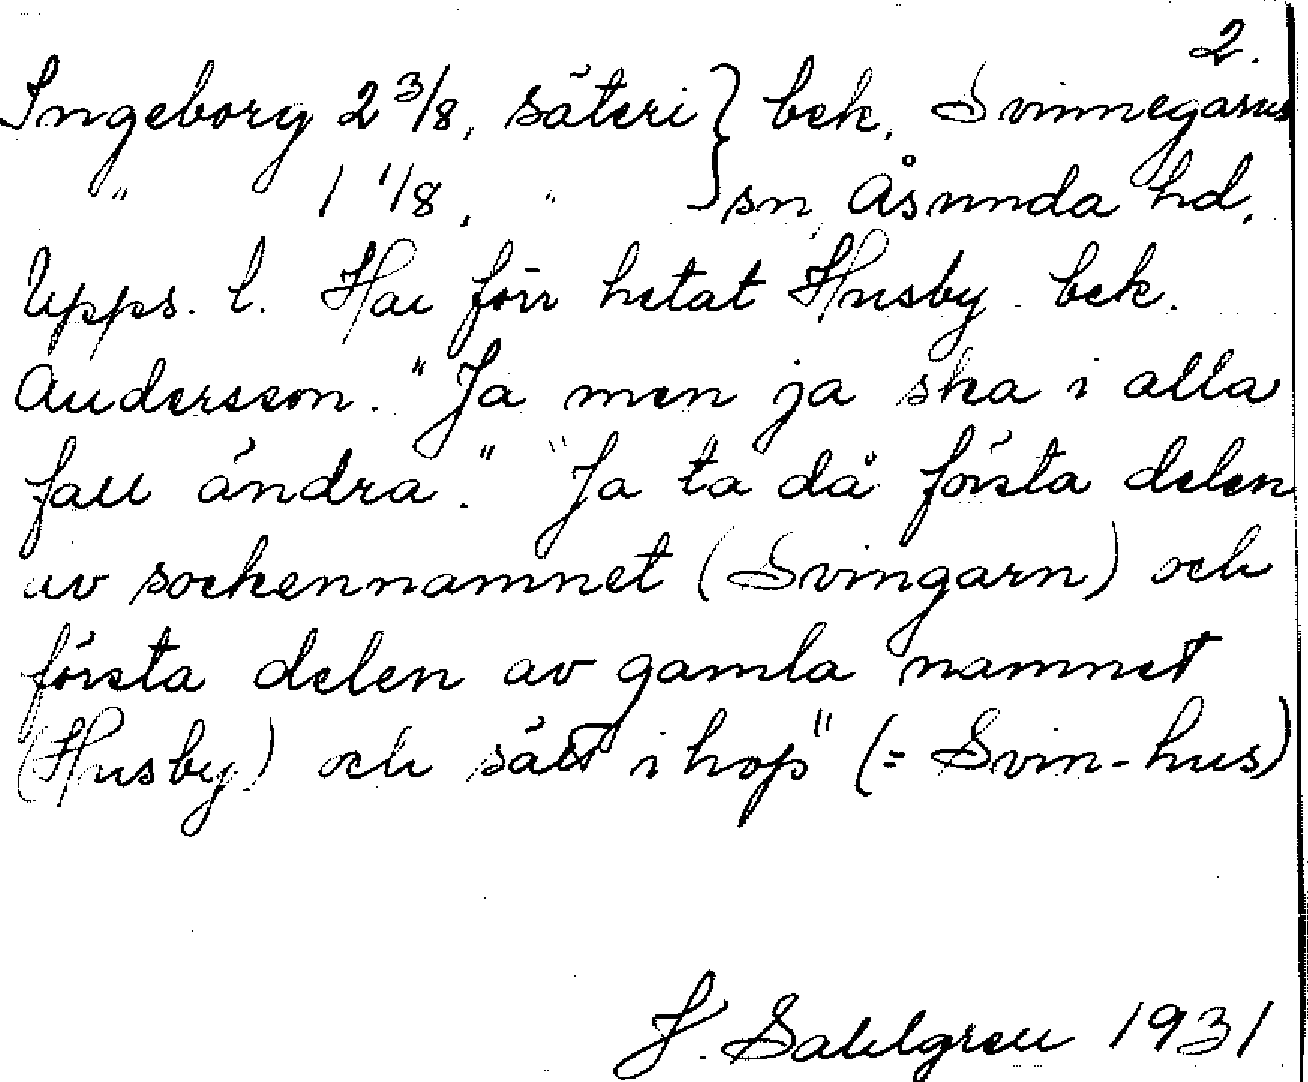 2.
Ingeborg 2 3/8, säteri } bek. Svinnegarns
" 1 1/8, " } sn, Åsunda hd,
Upps. l. Har förr hetat Husby. bek.
Andersson. "Ja men ja ska i alla
fall ändra." "Ja ta då första delen
av sockennamnet (Svingarn) och
första delen av gamla namnet
(Husby) och sätt ihop" (= Svin-hus)
J. Sahlgren 1931